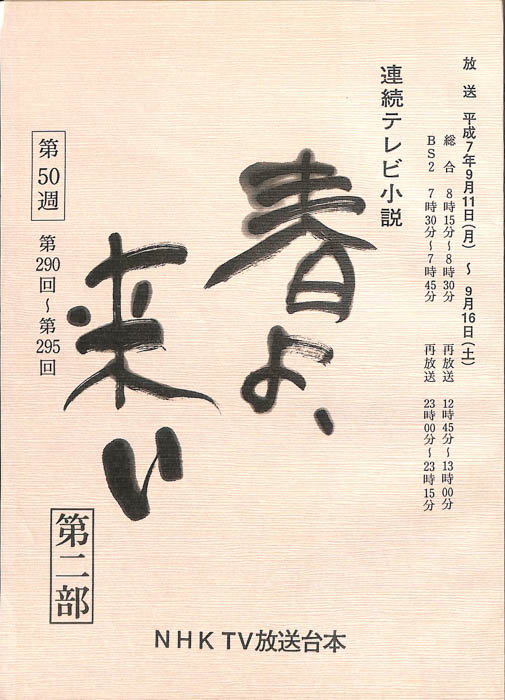 放送 平成7年9月11日(月)～9月16日(土)
総合 8時15分～8時30分 再放送 12時45分～13時00分
BS2 7時30分～7時45分 再放送 23時00分～23時15分
連続テレビ小説
春よ、
来い
第50週
第290回～第295回
第二部
NHK TV放送台本